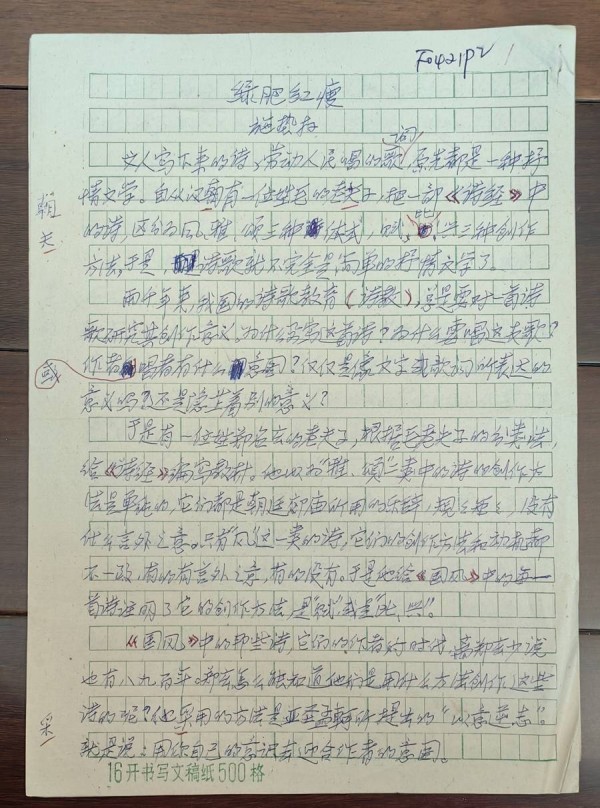 F0421P2 1
绿肥红瘦
施蛰存
文人写下来的诗,劳动人民唱的歌词,原先都是一种抒
情文学。自从汉朝有一位姓毛的老夫子,把一部《诗经》中
的诗,区分为风、雅、颂三种体式,赋、比、兴三种创作
方法,于是,诗歌就不完全是简单的抒情文学了。
两千年来,我国的诗歌教育(诗教),总是要对一首诗
歌研究其创作意义。为什么写这首诗?为什么要唱这支歌?
作者或唱者有什么意图?仅仅是像文字或歌词所表达的
意义吗?还是意生着别的意义?
于是有一位姓郑名玄的老夫子,根据毛老夫子的分类法,
给《诗经》编写教材。他以为“雅、颂”二类中的诗的创作方
法是单纯的,它们都是朝廷郊庙所用的乐辞,规规矩矩,没有
什么言外之意。只有“风”这一类的诗,它们的创作方法和动机都
不一致,有的有言外之意,有的没有。于是他给《国风》中的每一
首诗证明了它的创作方法,是“赋”或是“比、兴”。
《国风》中的那些诗,它们的作者的时代,离郑玄少说
也有八九百年。郑玄怎么能知道他们是用什么方法创作这些
诗的呢?他采用的方法是亚圣孟轲所提出的“以意逆志”。
就是说:用你自己的意识去迎合作者的意图。
朝
夫
或
采
16开书写文稿纸500格